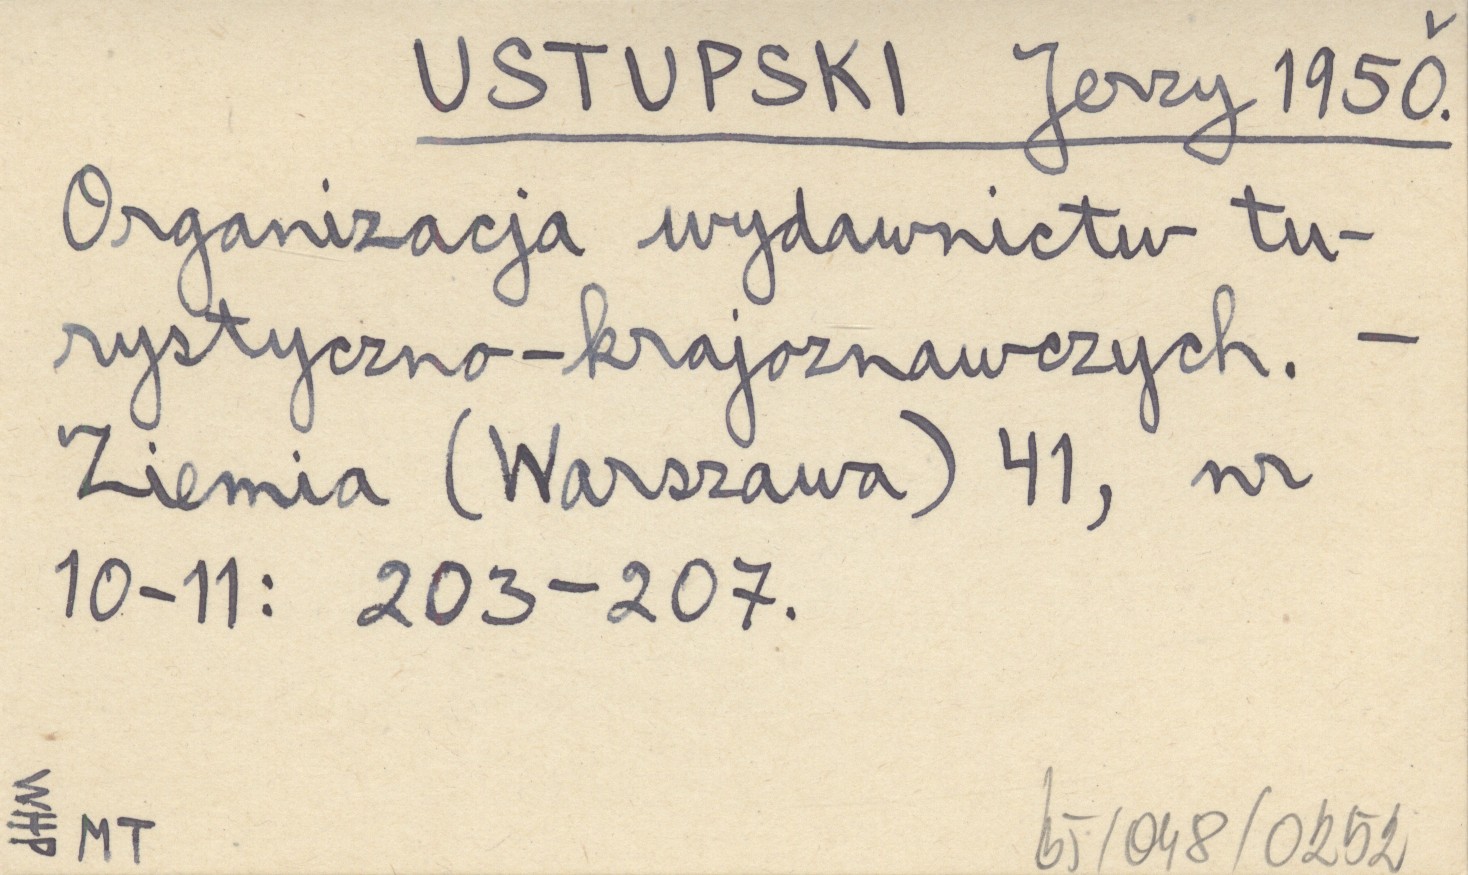 USTUPSKI Jerzy 1950.
Organizacja wydawnictw tu-
rystyczno-krajoznawczych. –
Ziemia (Warszawa) 41, nr
10-11: 203-207.
WHP
MT
b5/048/0252